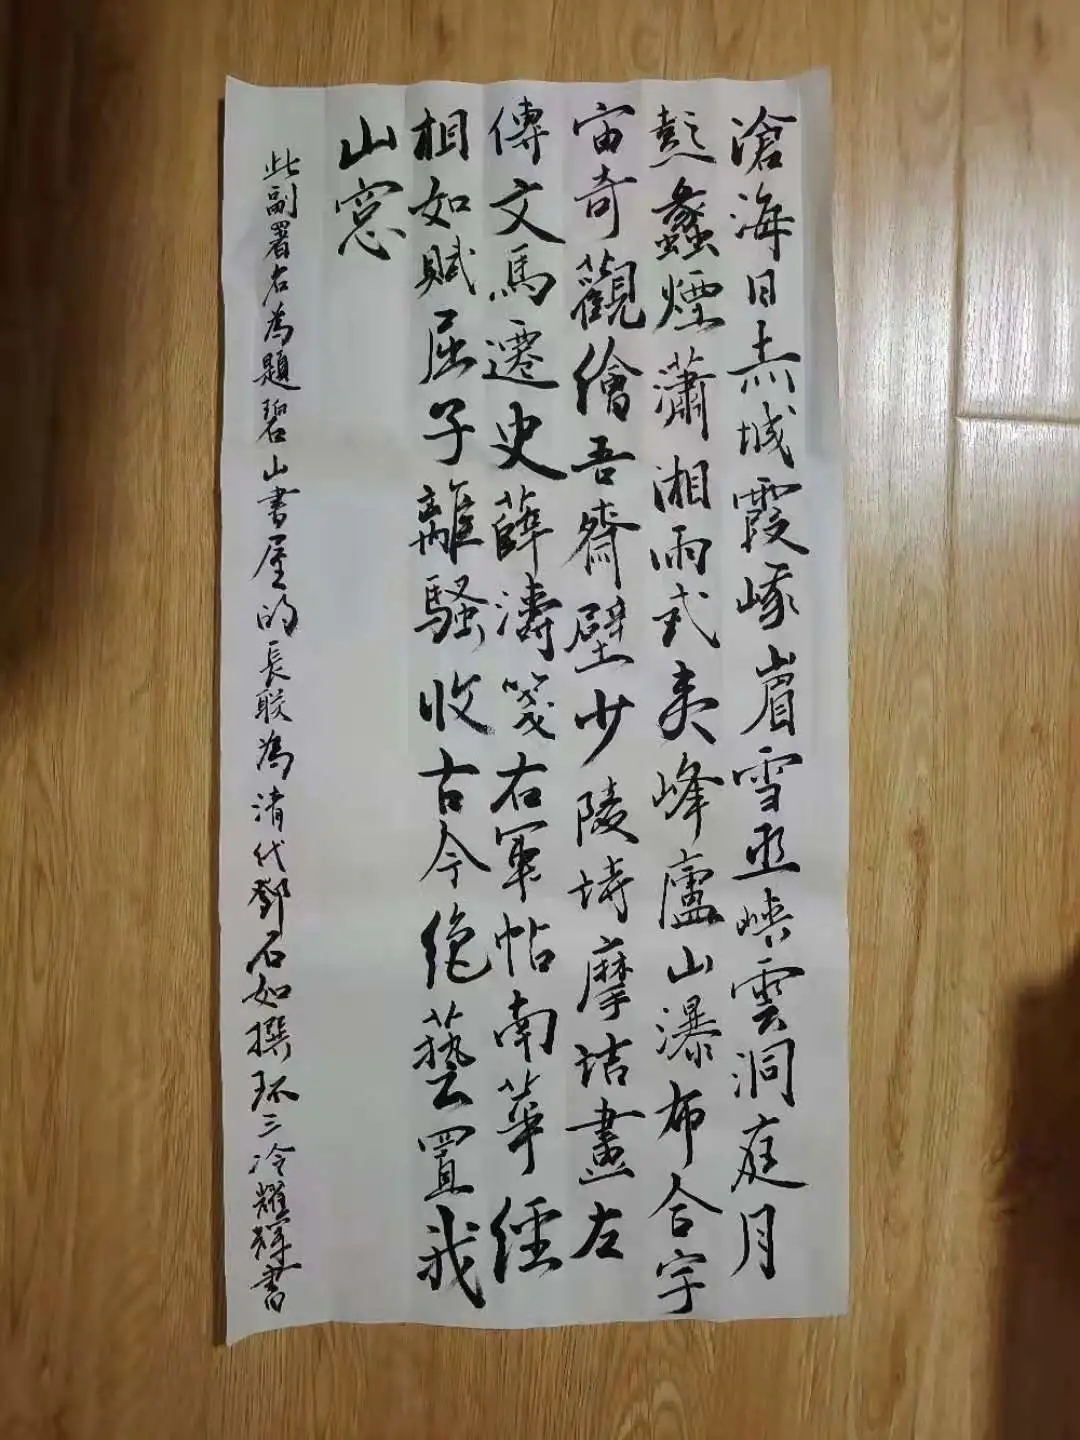 滄海日赤城霞峨眉雪巫峽雲洞庭月
彭蠡煙瀟湘雨武夷峰廬山瀑布合宇
宙奇觀繪吾齋壁少陵詩摩詰畫左
傳文馬遷史薛濤箋右軍帖南華經
相如賦屈子離騷收古今絶藝置我
山窓
此副署名為題碧山書屋的長联為清代鄧石如撰环三冷耀輝書